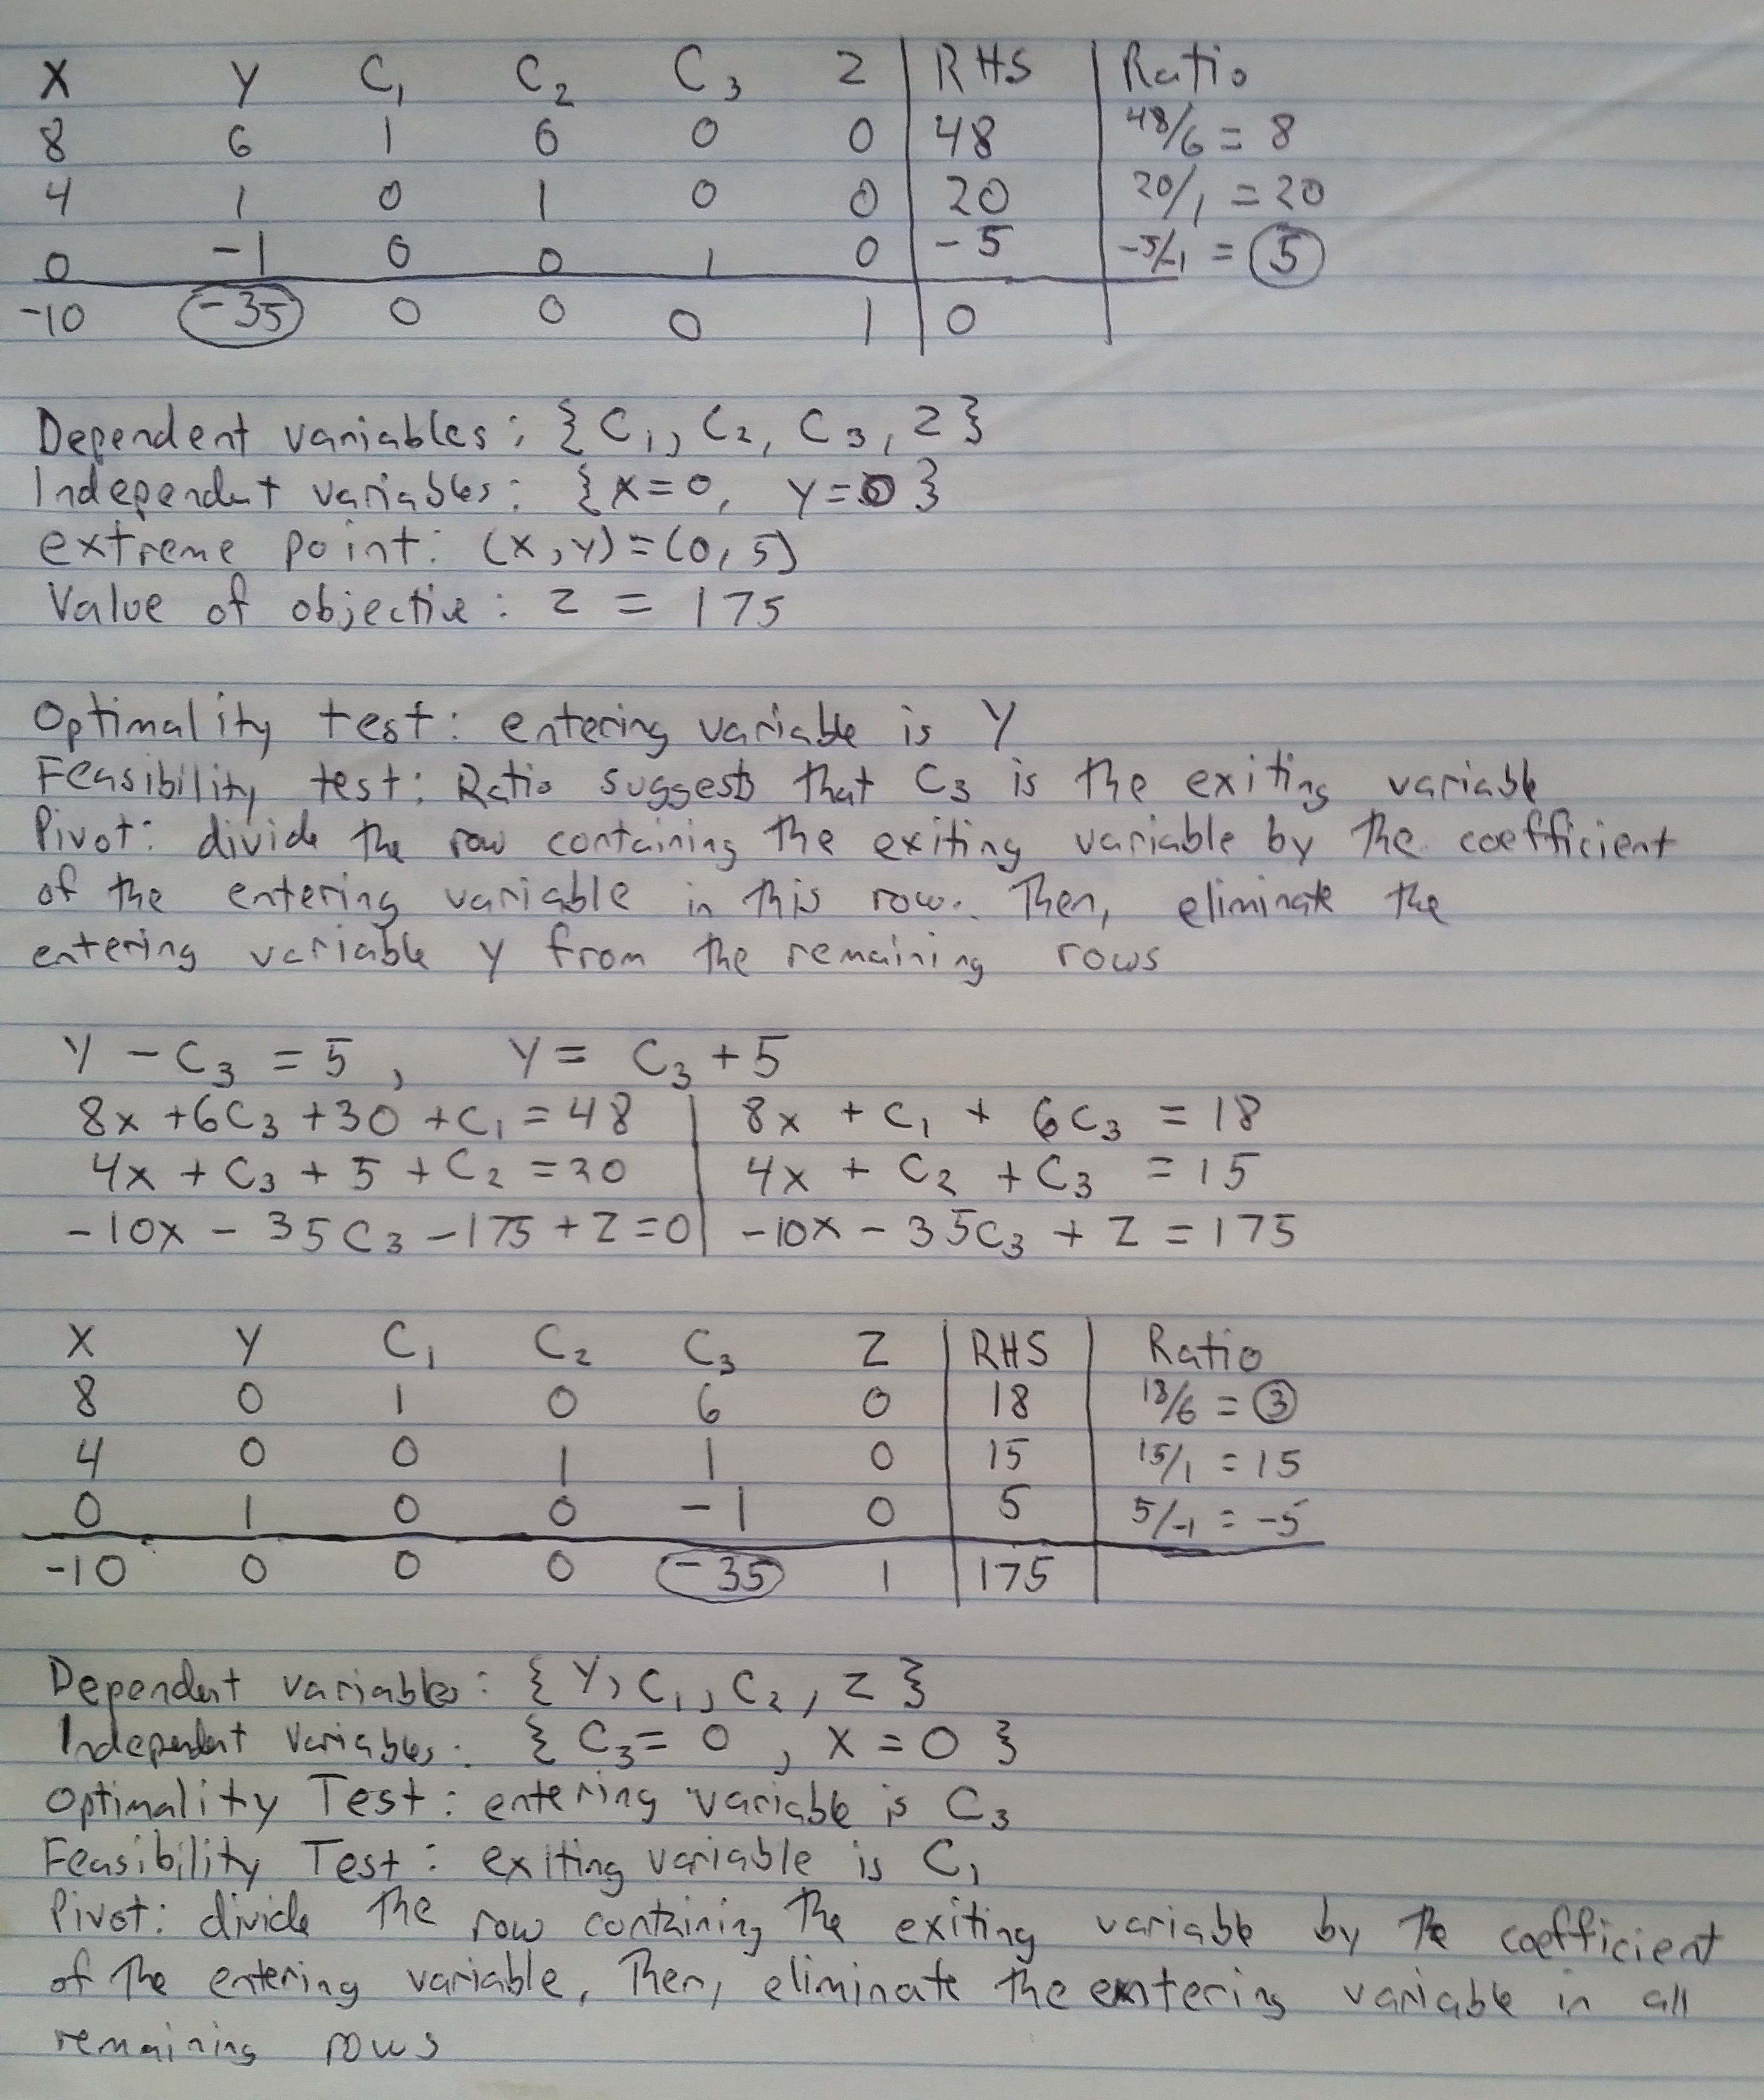 X Y C₁ C₂ C₃ Z RHS Ratio
8 6 1 0 0 0 48 48/6 = 8
4 1 0 1 0 0 20 20/1 = 20
0 -1 0 0 1 0 -5 -5/-1 = 5
-10 -35 0 0 0 1 0
Dependent variables: {C₁, C₂, C₃, Z}
Independent variables: {X=0, Y=0}
extreme point: (X,Y)=(0,5)
Value of objective: Z = 175
Optimality test: entering variable is Y
Feasibility test: Ratio suggests that C₃ is the exiting variable
Pivot: divide the row containing the exiting variable by the coefficient
of the entering variable in this row. Then, eliminate the
entering variable y from the remaining rows
Y - C₃ = 5, Y = C₃ + 5
8x + 6C₃ + 30 + C₁ = 48 8x + C₁ + 6C₃ = 18
4x + C₃ + 5 + C₂ = 20 4x + C₂ + C₃ = 15
-10x - 35C₃ - 175 + Z = 0 -10x - 35C₃ + Z = 175
X Y C₁ C₂ C₃ Z RHS Ratio
8 0 1 0 6 0 18 18/6 = 3
4 0 0 1 1 0 15 15/1 = 15
0 1 0 0 -1 0 5 5/-1 = -5
-10 0 0 0 -35 1 175
Dependent variables: {Y, C₁, C₂, Z}
Independent Variables: {C₃ = 0, X = 0}
Optimality Test: entering variable is C₃
Feasibility Test: exiting variable is C₁
Pivot: divide the row containing the exiting variable by the coefficient
of the entering variable, Then, eliminate the entering variable in all
remaining rows